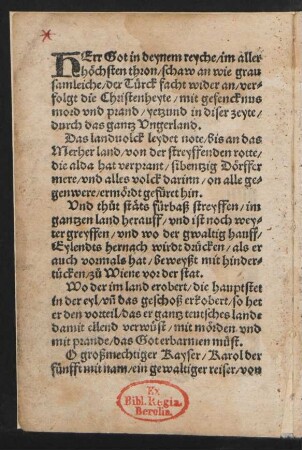 HErr Got in deynem reyche/im aller
höchsten thron/schaw an wie grau
samleiche/der Türck facht wider an/ver-
folgt die Christenheyte/mit gefencknus
mord vnd prand/yetzund in diser zeyte/
durch das gantz Vngerland.
Das landuolck leydet note/biß an das
Merher land/von der streyffenden rotte/
die alda hat verprant/sibentzig Dörffer
mere/vnd alles volck darinn/on alle ge-
genwere/ermördt gefürt hin.
Vnd thüt stäts fürbaß streyffen/im
gantzen land herauff/vnd ist noch wey-
ter greyffen/vnd wo der gwaltig hauff/
Eylendts hernach wirdt drücken/als er
auch vormals hat/beweyßt mit hinder-
tücken/zü Wiene vor der stat.
Wo der im land erobert/die hauptstet
in der eyl/vñ das geschoß erkobert/so het
er den vorteil/das er gantz teutsches lande
damit ellend verwüst/mit mörden vnd
mit prande/das Got erbarmen müst.
O großmechtiger Kayser/Karol der
fünfft mit nam/ein gewaltiger reiser/von
Ex
Bibl. Regia
Berolin.